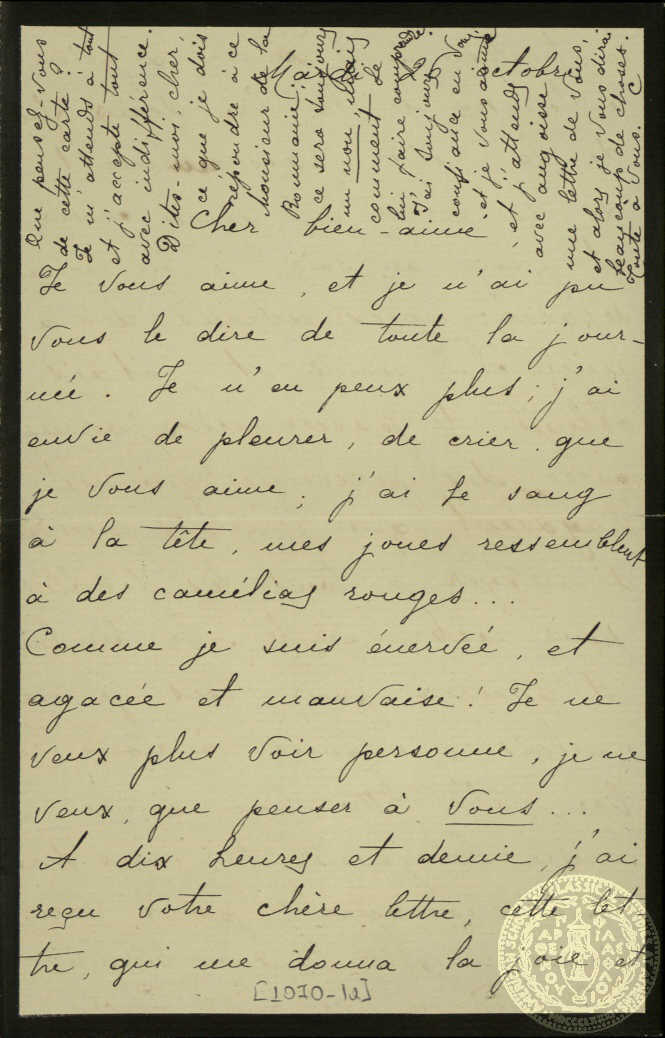 Mardi 25 octobre
Cher bien-aimé
Je vous aime, et je n'ai pu
vous le dire de toute la jour-
née. Je n'en peux plus; j'ai
envie de pleurer, de crier que
je vous aime; j'ai le sang
à la tête, mes joues ressemblent
à des camélias rouges...
Comme je suis énervée, et
agacée et mauvaise! Je ne
veux plus voir personne, je ne
veux, que penser à vous...
A dix heures et demie, j'ai
reçu votre chère lettre, cette let-
tre, qui me donna la joie et
[1070-14]
Que pensez-vous
de cette carte?
Je m'attends à tout
et j'accepte tout
avec indifférence.
Dites-moi, cher,
ce que je dois
répondre à ce
Monsieur de la
Roumanie;
ce sera toujours
un non, mais
comment le
lui faire comprendre.
J'ai toujours
confiance en vous
et je vous aime
et j'attends
avec angoisse
une lettre de vous,
et alors je vous dirai
beaucoup de choses.
Toute à vous. C